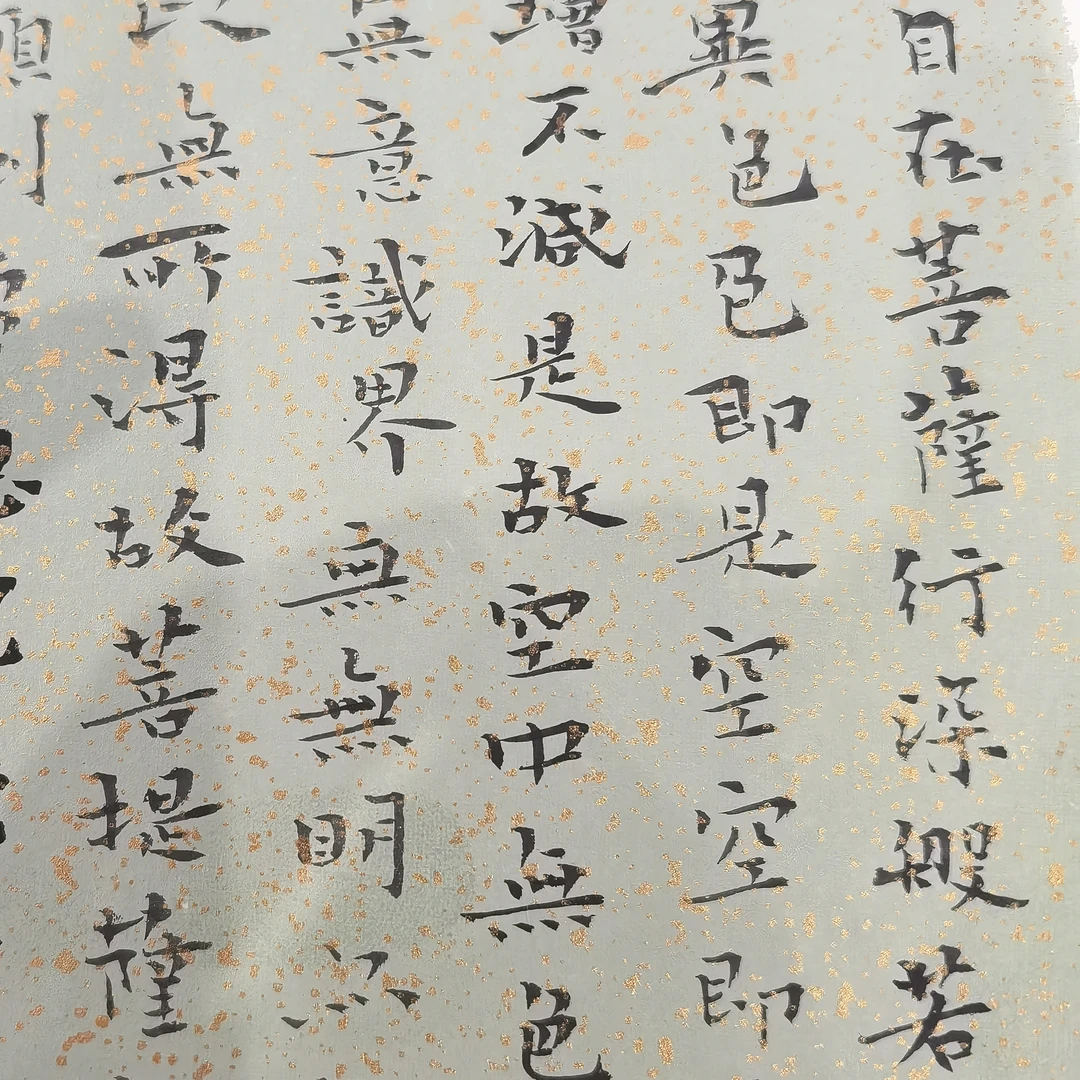 自在菩薩行深般若
異色色即是空空即
增不減是故空中無色
無意識界無無明亦
無所得故菩提薩